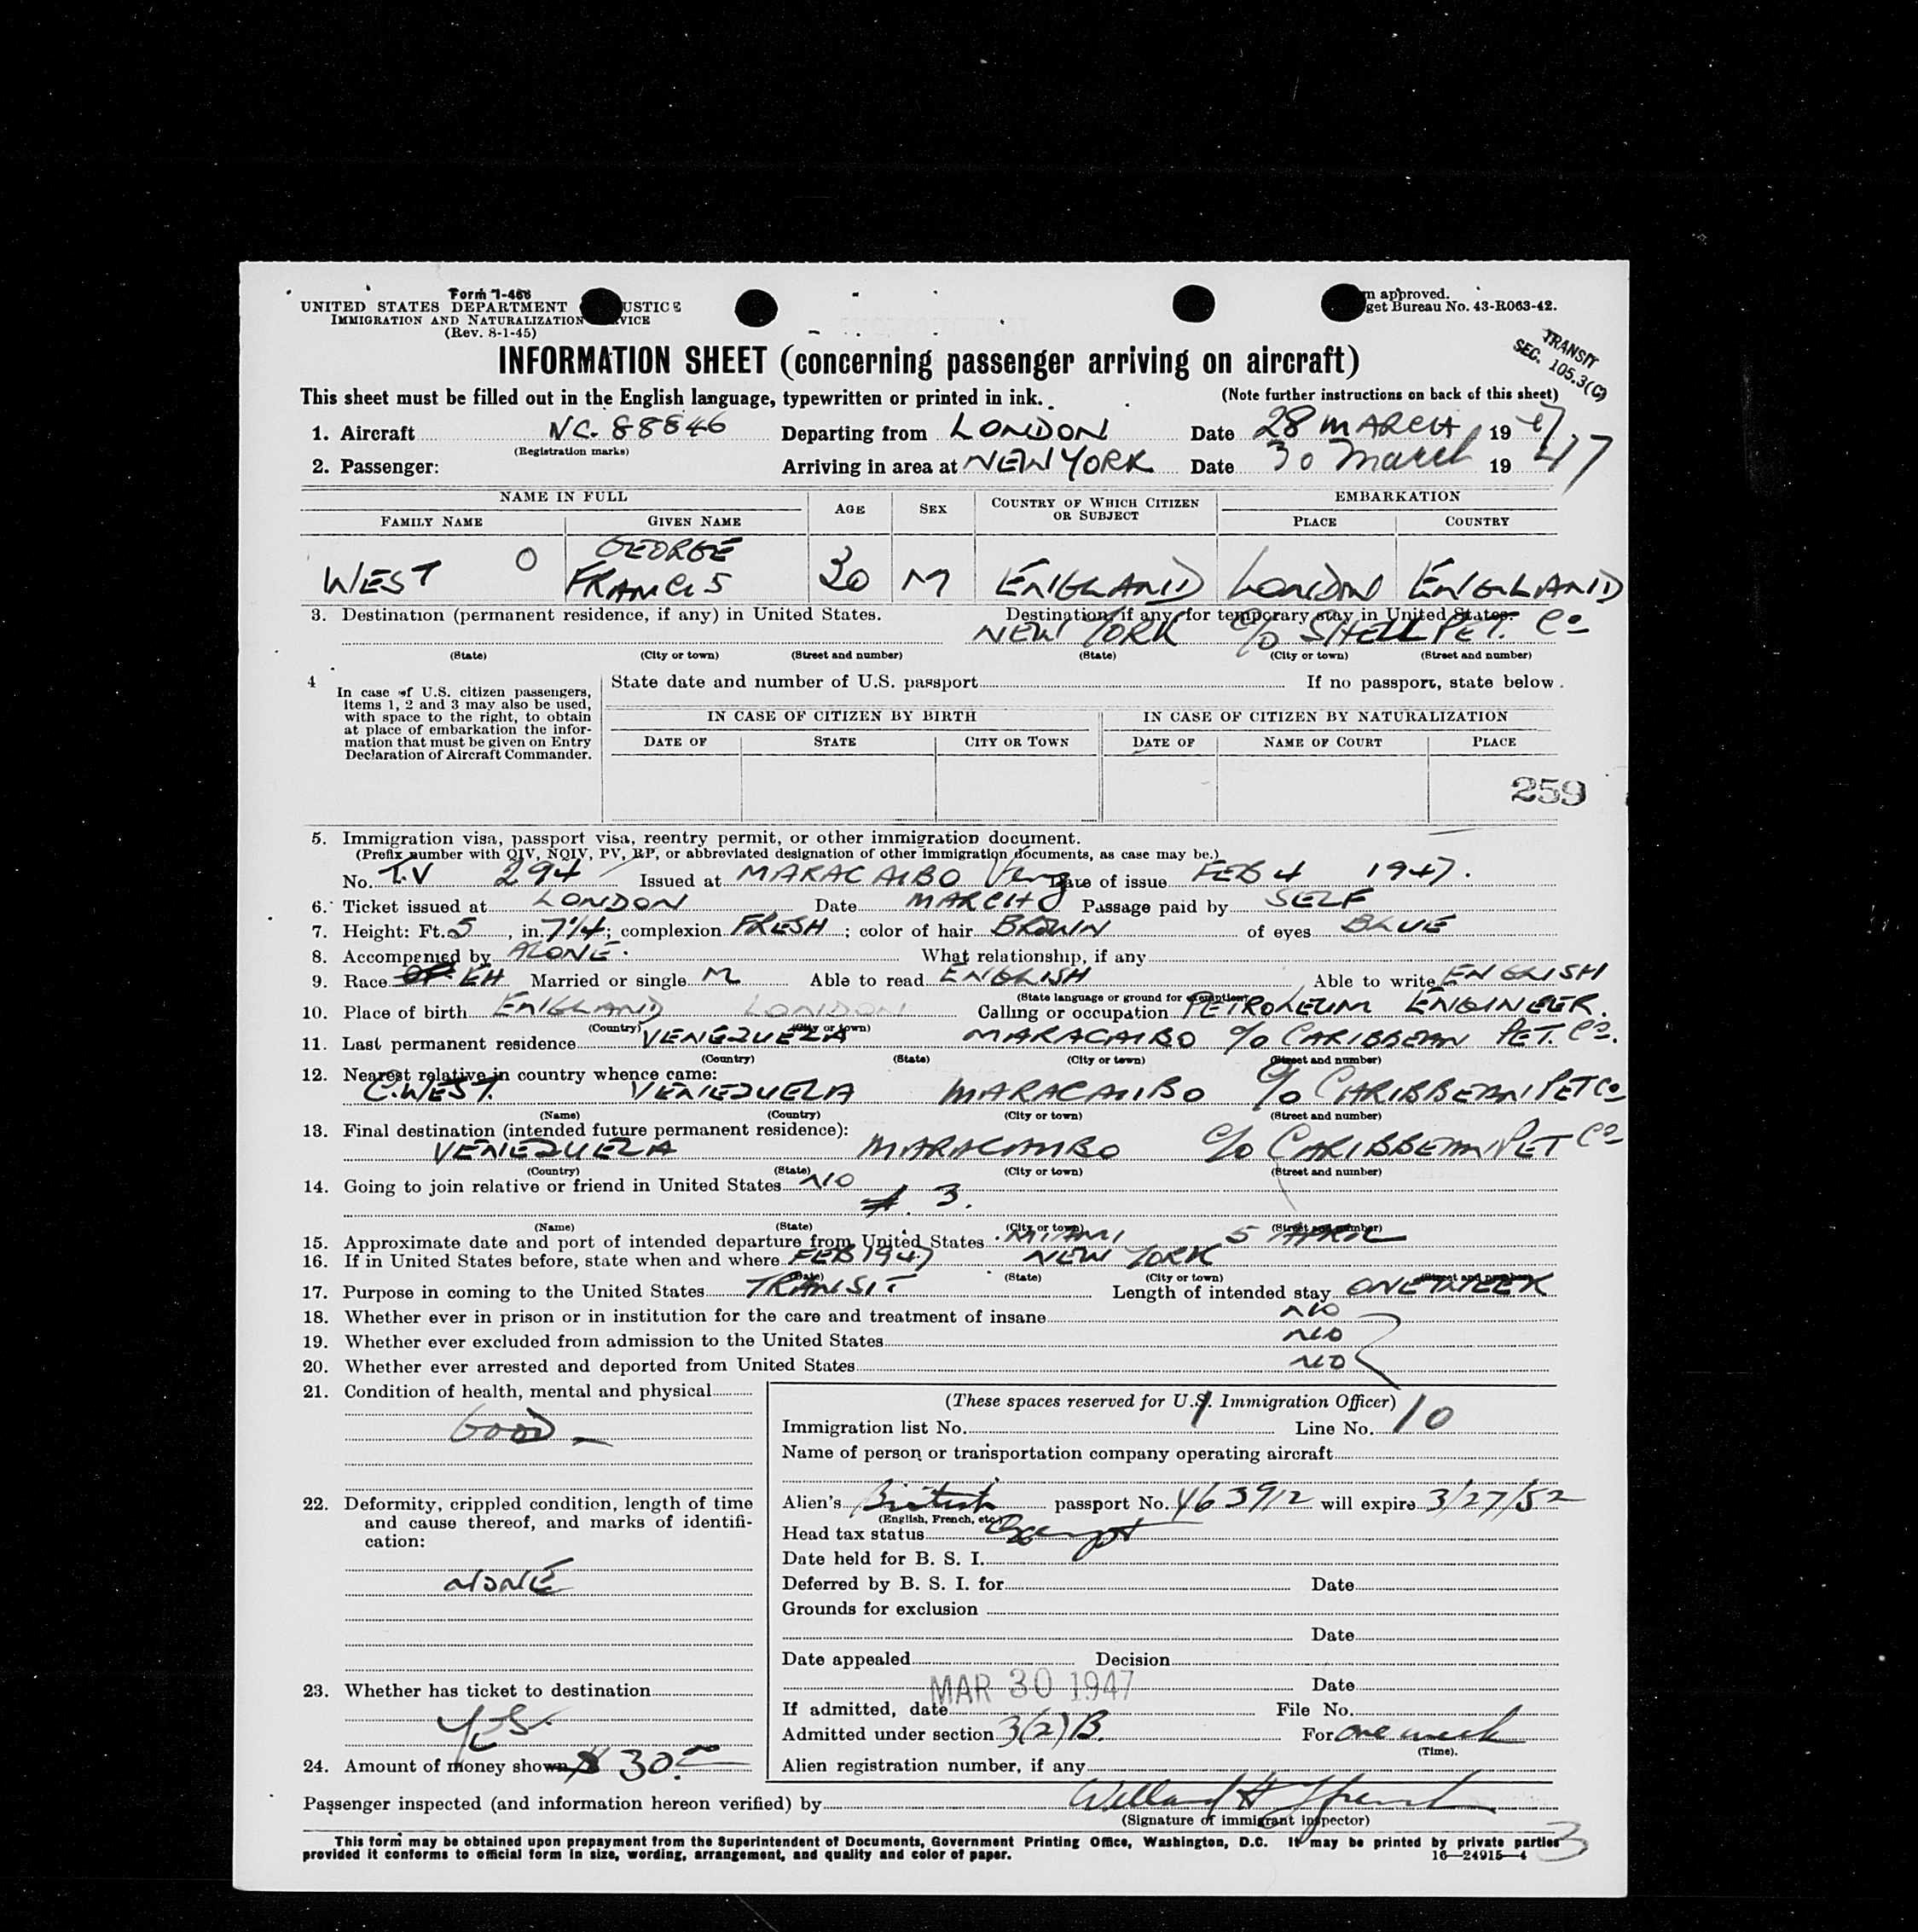 Form I-466
UNITED STATES DEPARTMENT USTICE
IMMIGRATION AND NATURALIZATION VICE
(Rev. 8-1-45)
m approved.
get Bureau No. 43-R063-42.
TRANSIT
SEC. 105.3(C)
INFORMATION SHEET (concerning passenger arriving on aircraft)
This sheet must be filled out in the English language, typewritten or printed in ink. (Note further instructions on back of this sheet)
1. Aircraft NC. 88846 Departing from LONDON Date 28 MARCH 1947
(Registration marks)
2. Passenger: Arriving in area at NEW YORK Date 30 March 1947
NAME IN FULL EMBARKATION
FAMILY NAME GIVEN NAME AGE SEX COUNTRY OF WHICH CITIZEN OR SUBJECT PLACE COUNTRY
GEORGE
WEST O FRANCIS 30 M ENGLAND LONDON ENGLAND
3. Destination (permanent residence, if any) in United States. Destination, if any, for temporary stay in United States.
NEW YORK C/O SHELL PET. Co
(State) (City or town) (Street and number) (State) (City or town) (Street and number)
4 In case of U.S. citizen passengers,
items 1, 2 and 3 may also be used,
with space to the right, to obtain
at place of embarkation the infor-
mation that must be given on Entry
Declaration of Aircraft Commander.
State date and number of U.S. passport If no passport, state below.
IN CASE OF CITIZEN BY BIRTH IN CASE OF CITIZEN BY NATURALIZATION
DATE OF STATE CITY OR TOWN DATE OF NAME OF COURT PLACE
259
5. Immigration visa, passport visa, reentry permit, or other immigration document.
(Prefix number with QIV, NQIV, PV, RP, or abbreviated designation of other immigration documents, as case may be.)
No. T.V 294 Issued at MARACAIBO Venz Date of issue FEB 4 1947.
6. Ticket issued at LONDON Date MARCH Passage paid by SELF
7. Height: Ft. 5, in. 7 1/4; complexion FRESH; color of hair BROWN of eyes BLUE
8. Accompanied by ALONE. What relationship, if any
9. Race EH Married or single M Able to read ENGLISH Able to write ENGLISH
(State language or ground for exemption)
10. Place of birth ENGLAND LONDON Calling or occupation PETROLEUM ENGINEER.
(Country) (City or town)
11. Last permanent residence VENEZUELA MARACAIBO C/O CARIBBEAN PET. Co.
(Country) (State) (City or town) (Street and number)
12. Nearest relative in country whence came:
C. WEST. VENEZUELA MARACAIBO C/O CARIBBEAN PET Co
(Name) (Country) (City or town) (Street and number)
13. Final destination (intended future permanent residence):
VENEZUELA MARACAIBO C/O CARIBBEAN PET Co
(Country) (State) (City or town) (Street and number)
14. Going to join relative or friend in United States NO
3.
(Name) (State) (City or town) (Street and number)
15. Approximate date and port of intended departure from United States MIAMI 5 APRIL
16. If in United States before, state when and where FEB 1947 NEW YORK
(Date) (State) (City or town) (Street and number)
17. Purpose in coming to the United States TRANSIT Length of intended stay ONE WEEK
18. Whether ever in prison or in institution for the care and treatment of insane NO
19. Whether ever excluded from admission to the United States NO
20. Whether ever arrested and deported from United States NO
21. Condition of health, mental and physical
GOOD
22. Deformity, crippled condition, length of time
and cause thereof, and marks of identifi-
cation:
NONE
23. Whether has ticket to destination
YES.
24. Amount of money shown $ 30.00
(These spaces reserved for U.S. Immigration Officer)
Immigration list No. 1 Line No. 10
Name of person or transportation company operating aircraft
Alien's British passport No. 463912 will expire 3/27/52
(English, French, etc.)
Head tax status Exempt
Date held for B. S. I.
Deferred by B. S. I. for Date
Grounds for exclusion
Date
Date appealed Decision
MAR 30 1947 Date
If admitted, date File No.
Admitted under section 3(2)B. For one week
(Time).
Alien registration number, if any
Passenger inspected (and information hereon verified) by
(Signature of immigrant inspector)
This form may be obtained upon prepayment from the Superintendent of Documents, Government Printing Office, Washington, D.C. It may be printed by private parties
provided it conforms to official form in size, wording, arrangement, and quality and color of paper. 16—24915-4
3